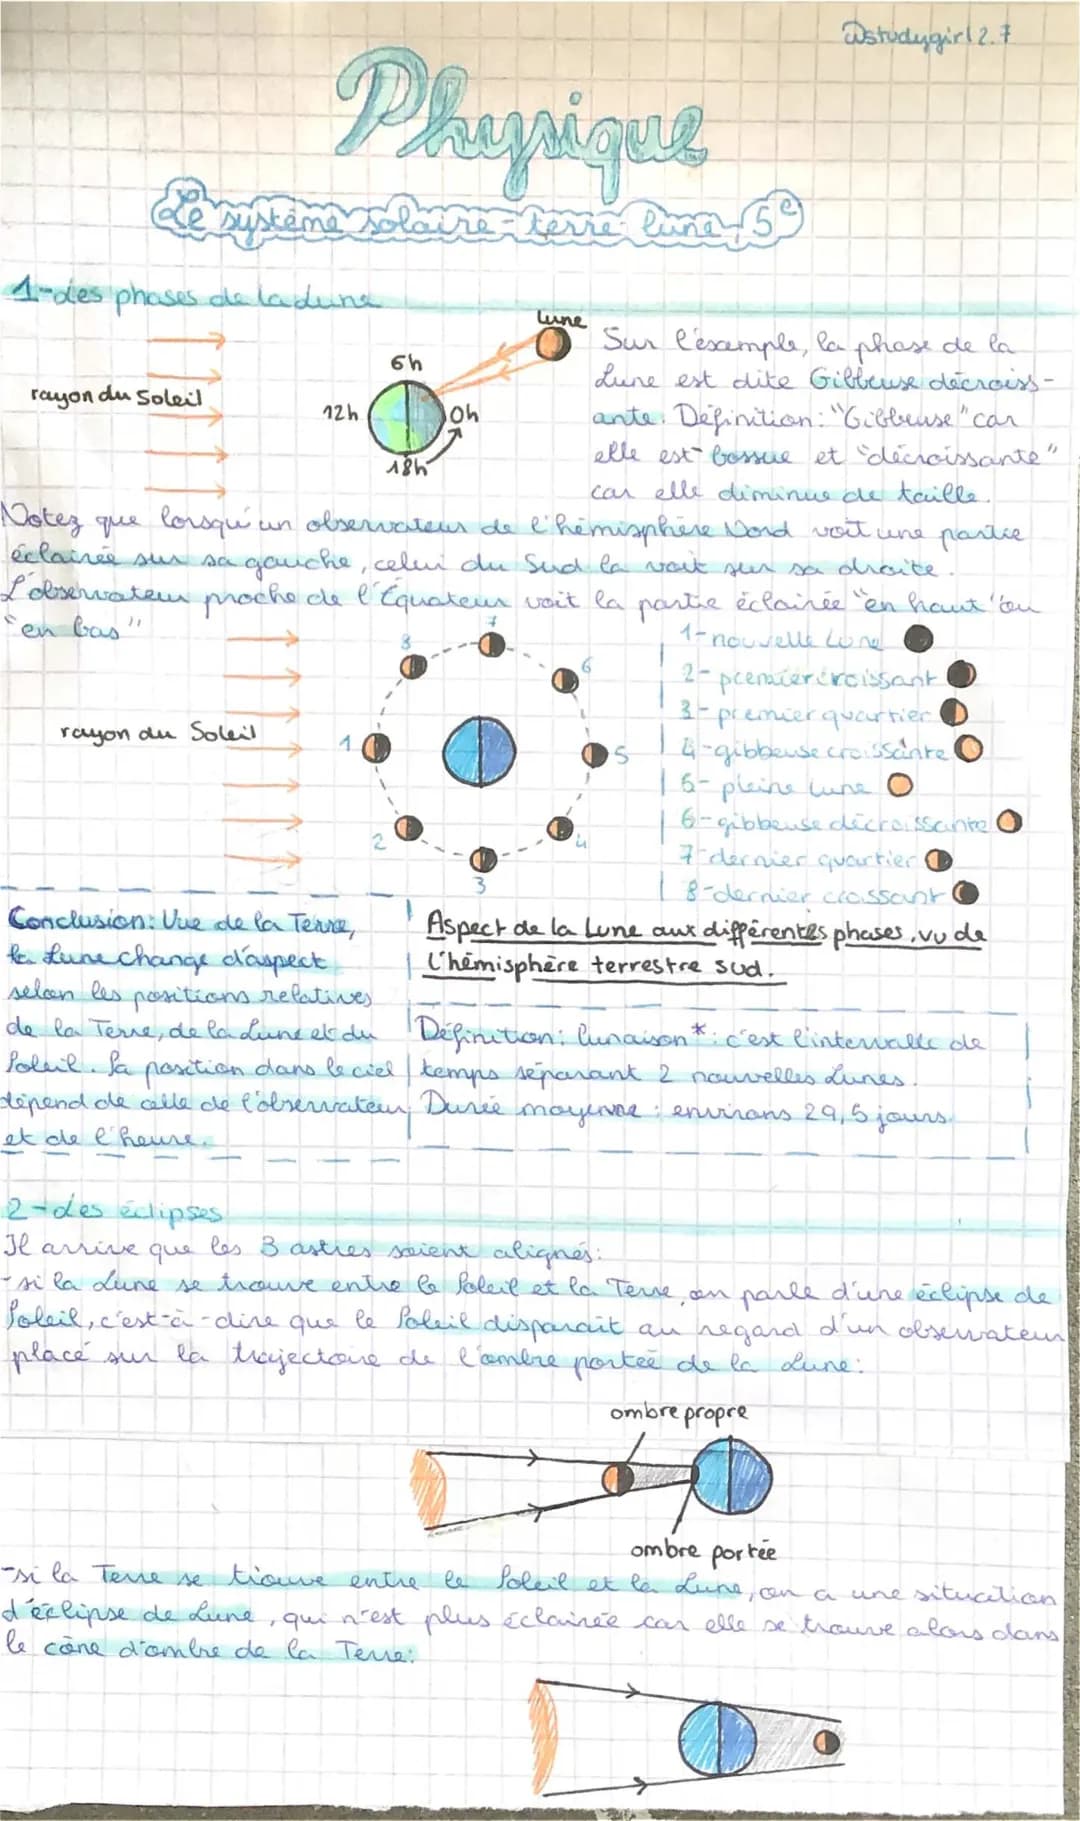 @studygirl2.7
Physique
Le système solaire-terre-lune-5e
1-des phases de la Lune
Lune
rayon du Soleil
6h
12h
0h
18h
Sur l'éxemple, la phase de la
Lune est dite Gibbeuse décroiss-
ante. Définition: "Gibbeuse" car
elle est bossue et "décroissante"
car elle diminue de taille.
Notez que lorsqu'un observateur de l'hémisphère Nord voit une partie
éclairée sur sa gauche, celui du Sud la voit sur sa droite.
L'observateur proche de l'Équateur voit la partie éclairée "en haut" ou
"en bas"
rayon du Soleil
1
2
3
4
5
6
7
8
1-nouvelle Lune
2-premier croissant
3-premier quartier
4-gibbeuse croissante
5-pleine lune
6-gibbeuse décroissante
7-dernier quartier
8-dernier croissant
Conclusion: Vue de la Terre,
la Lune change d'aspect
selon les positions relatives
de la Terre, de la Lune et du
Soleil. Sa position dans le ciel
dépend de celle de l'observateur
et de l'heure.
Aspect de la Lune aux différentes phases, vu de
l'hémisphère terrestre sud.
Définition: lunaison*: c'est l'intervalle de
temps séparant 2 nouvelles Lunes.
Durée moyenne: environs 29,5 jours.
2-des éclipses
Il arrive que les 3 astres soient alignés:
-si la Lune se trouve entre le Soleil et la Terre, on parle d'une éclipse de
Soleil, c'est-à-dire que le Soleil disparait au regard d'un observateur
placé sur la trajectoire de l'ombre portée de la Lune:
ombre propre
ombre portée
-si la Terre se trouve entre le Soleil et la Lune, on a une situation
d'éclipse de Lune, qui n'est plus éclairée car elle se trouve alors dans
le cône d'ombre de la Terre: